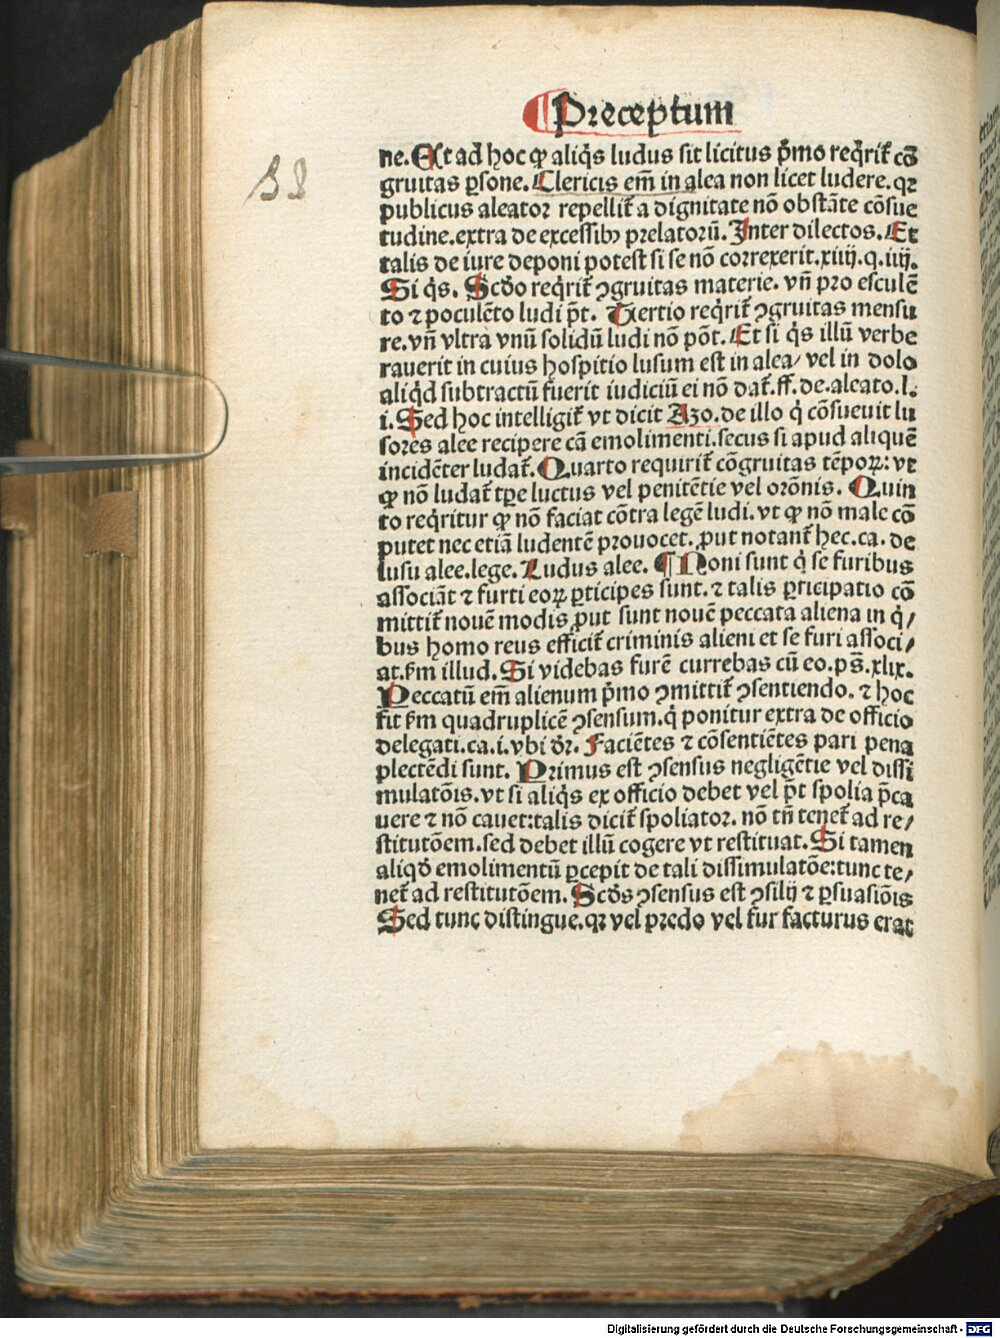 ¶ Preceptum
88
ne. Et ad hoc ꝙ aliq̇s ludus sit licitus p̄mo reqͥrit̄ cō
gruitas ꝑsone. Clericis em̄ in alea non licet ludere. qꝛ
publicus aleator repellit̄ a dignitate nō obstāte cōsue
tudine. extra de excessibꝫ prelatorū. Inter dilectos. Et
talis de iure deponi potest si se nō correxerit. xiiij. q. iiij.
Si q̇s. Scd̄o reqͥrit̄ ꝯgruitas materie. vn̄ pro esculē
to ⁊ poculēto ludi p̄t. Tertio reqͥrit̄ ꝯgruitas mensu
re. vn̄ vltra vnū solidū ludi nō pōt. Et si q̇s illū verbe
rauerit in cuius hospitio lusum est in alea/ vel in dolo
aliq̇d subtractū fuerit iudiciū ei nō dat̄. ff. de. aleato. l.
i. Sed hoc intelligit̄ vt dicit Azo. de illo q̇ cōsueuit lu
sores alee recipere cā emolimenti. secus si apud aliquē
incidēter ludat̄. Quarto requirit̄ cōgruitas tēpoꝝ: vt
ꝙ nō ludat̄ tꝑe luctus vel penitētie vel orōnis. Quin
to reqͥritur ꝙ nō faciat cōtra legē ludi. vt ꝙ nō male cō
putet nec etiā ludentē prouocet. ꝓut notant̄ hec. ca. de
lusu alee. lege. Ludus alee. ¶ Noni sunt q̇ se furibus
associāt ⁊ furti eoꝝ ꝑticipes sunt. ⁊ talis ꝑticipatio cō
mittit̄ nouē modis ꝓut sunt nouē peccata aliena in q̇/
bus homo reus efficit̄ criminis alieni et se furi associ/
at. ẜm illud. Si videbas furē currebas cū eo. ps̄. xlix.
Peccatū em̄ alienum p̄mo ꝯmittit̄ ꝯsentiendo. ⁊ hoc
fit ẜm quadruplicē ꝯsensum. q̇ ponitur extra de officio
delegati. ca. i. vbi dr̄. Faciētes ⁊ cōsentiētes pari pena
plectēdi sunt. Primus est ꝯsensus negligētie vel dissi
mulatōis. vt si aliq̇s ex officio debet vel p̄t spolia p̄ca
uere ⁊ nō cauet: talis dicit̄ spoliator. nō tn̄ tenet̄ ad re/
stitutōem. sed debet illū cogere vt restituat. Si tamen
aliqd̄ emolimentū ꝑcepit de tali dissimulatōe: tunc te/
net̄ ad restitutōem. Scd̄s ꝯsensus est ꝯsilij ⁊ ꝑsuasiōis
Sed tunc distingue. qꝛ vel predo vel fur facturus erat
Digitalisierung gefördert durch die Deutsche Forschungsgemeinschaft - DFG